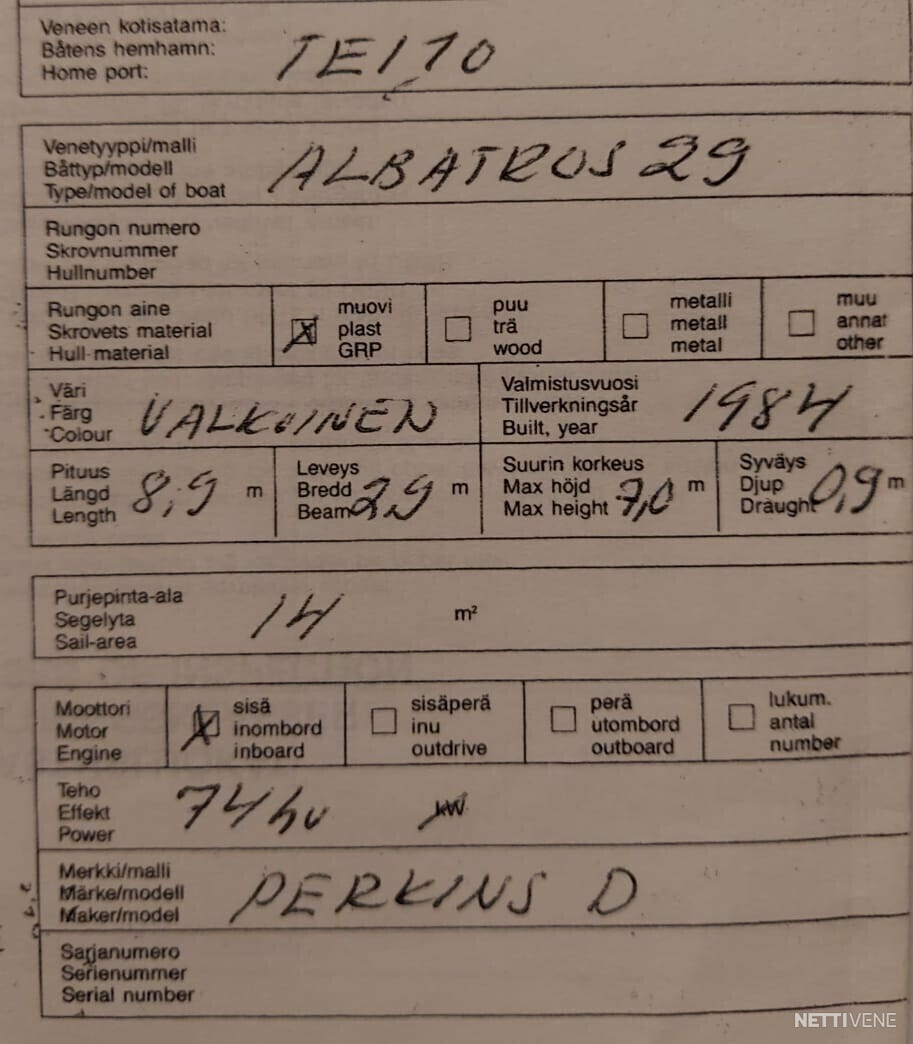 Veneen kotisatama:
Båtens hemhamn:
Home port:
TEIJO
Venetyyppi/malli
Båttyp/modell
Type/model of boat
ALBATROS 29
Rungon numero
Skrovnummer
Hullnumber
Rungon aine
Skrovets material
Hull material
X
muovi
plast
GRP
puu
trä
wood
metalli
metall
metal
muu
annat
other
Väri
Färg
Colour
VALKOINEN
Valmistusvuosi
Tillverkningsår
Built, year
1984
Pituus
Längd
Length
8,9 m
Leveys
Bredd
Beam
2,9 m
Suurin korkeus
Max höjd
Max height
7,0 m
Syväys
Djup
Draught
0,9 m
Purjepinta-ala
Segelyta
Sail-area
14 m²
Moottori
Motor
Engine
X
sisä
inombord
inboard
sisäperä
inu
outdrive
perä
utombord
outboard
lukum.
antal
number
Teho
Effekt
Power
74 hv kW
Merkki/malli
Märke/modell
Maker/model
PERKINS D
Sarjanumero
Serienummer
Serial number
NETTIVENE